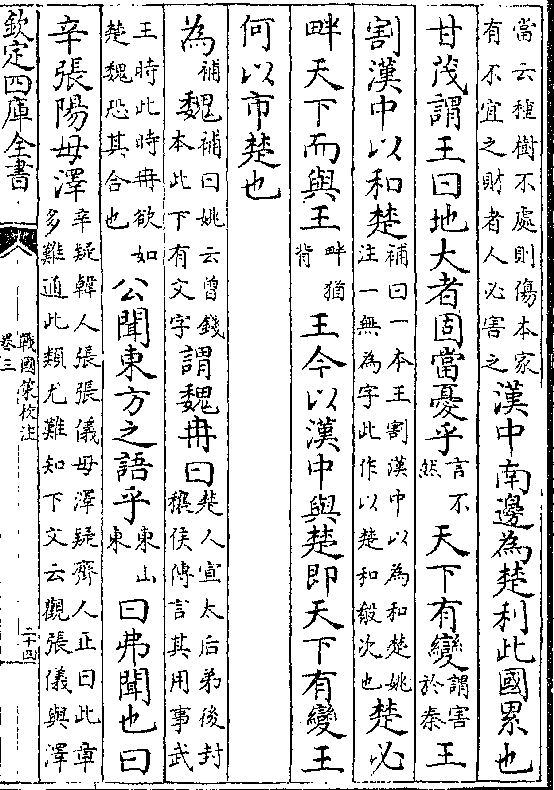 當云種樹不處則傷本家
有不宜之財者人必害之
漢中南邊為楚利此國累也
甘茂謂王曰地大者固當憂乎
言不
然
天下有變
謂害
於秦
王
割漢中以和楚
補曰一本王割漢中以為和楚姚
注一無為字此作以楚和殽次也
楚必
畔天下而與王
畔猶
背
王今以漢中與楚即天下有變王
何以市楚也
為
補
魏
補曰姚云曾錢
本此下有文字
謂魏冉曰
楚人宣太后弟後封
穰侯傳言其用事武
王時此時冉欲如
楚魏恐其合也
公聞東方之語乎
東山
東
曰弗聞也曰
辛張陽毋澤
辛疑韓人張張儀毋澤疑齊人正曰此章
多難通此類尤難知下文云觀張儀與澤
欽定四庫全書
戰國策校注
卷三
二十四